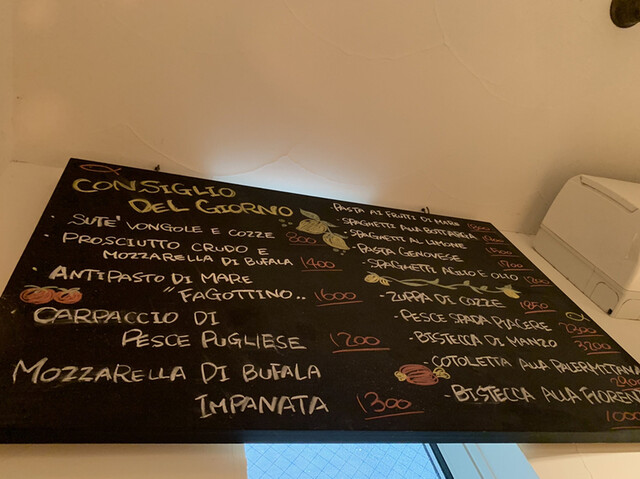 CONSIGLIO
DEL GIORNO
· SUTE' VONGOLE E COZZE 800
· PROSCIUTTO CRUDO E
MOZZARELLA DI BUFALA 1400
· ANTIPASTO DI MARE
"FAGOTTINO.. 1600
CARPACCIO DI
PESCE PUGLIESE 1200
MOZZARELLA DI BUFALA
IMPANATA 1300
PASTA AI FRUTTI DI MARE
· SPAGHETTI ALLA BOTTARGA
· SPAGHETTI AL LIMONE
· PASTA GENOVESE
· SPAGHETTI AGLIO E OLIO
· ZUPPA DI COZZE 1850
· PESCE SPADA PIACERE 2300
· BISTECCA DI MANZO 3200
· COTOLETTA ALLA PALERMITANA
· BISTECCA ALLA FIOREN